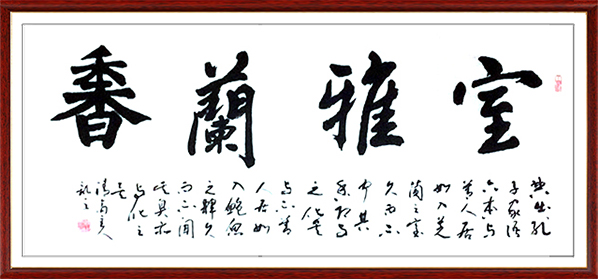 室雅蘭香
典出孔
子家語
六本与
善人居
如入芝
蘭之室
久而不
聞其
香即与
之化矣
与不善
人居如
入鮑魚
之肆久
而不聞
其臭亦
与化之
矣